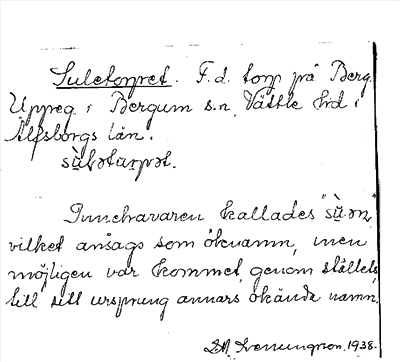 Suletorpet. F.d. torp på Berg
Uppreg. i Bergum s:n, Vättle hd i
Älfsborgs län.
sùlətarpət.
Innehavaren kallades "sù:ən,"
vilket ansågs som öknamn, men
möjligen var kommet genom ställets,
till sitt ursprung annars okända namn.
1938.